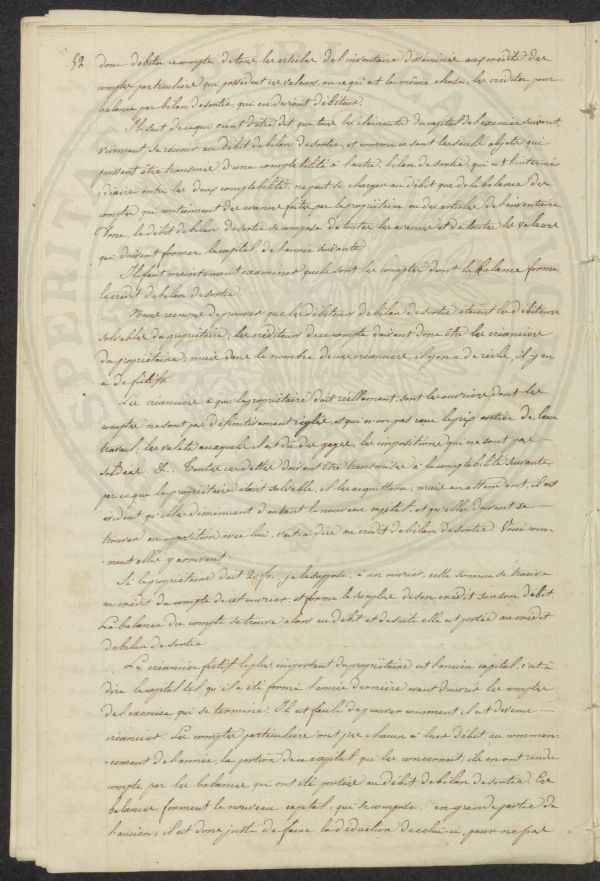 52 donc débiter ce compte de tous les articles de l'inventaire disséminés aux crédits des
comptes particuliers qui possèdent ces valeurs ou ce qui est la même chose, les créditer pour
balance par bilan de sortie, qui en devient débiteur.
Il suit de ce qui vient d'être dit que tous les élémens du capital de l'exercice suivant,
viennent se réunir au débit de bilan de sortie, et comme ce sont les seuls objets qui
puissent être transmis d'une comptabilité à l'autre, bilan de sortie, qui est l'intermé
=diaire entre les deux comptabilités, ne peut se charger au débit que de la balance des
comptes qui contiennent des avances faites par le propriétaire ou des articles de l'inventaire
Donc, le débit de bilan de sortie se compose de toutes les avances et de toutes les valeurs
qui doivent former le capital de l'année suivante.
Il faut maintenant examiner quels sont les comptes dont la balance forme
le crédit de bilan de sortie.
Nous venons de prouver que les débiteurs de bilan de sortie étaient les débiteurs
solvables du propriétaire, les créditeurs de ce compte doivent donc être les créanciers
du propriétaire; mais dans le nombre de ces créanciers, il y en a de réels, il y en
a de fictifs.
Les créanciers à qui le propriétaire doit réellement, sont les ouvriers dont les
comptes ne sont pas définitivement réglés, et qui n'ont pas reçu le prix entier de leur
travail, les valets auxquels il est dû des gages, les impositions qui ne sont pas
soldées &. Toutes ces dettes doivent être transmises à la comptabilité suivante,
parce que le propriétaire étant solvable, il les acquittera; mais en attendant, il est
évident qu'elles diminuent d'autant le nouveau capital, et qu'elles doivent se
trouver en opposition avec lui, c'est à dire au crédit de bilan de sortie. Voici com-
ment elles y arrivent.
Si le propriétaire doit 20 fr., je le suppose, à un ouvrier, cette somme se trouve
au crédit du compte de cet ouvrier, et forme le surplus de son crédit sur son débit.
La balance du compte se trouve alors au débit et de suite elle est portée au crédit
de bilan de sortie.
Le créancier fictif le plus important du propriétaire est l'ancien capital, c'est à
dire le capital tel qu'il a été formé l'année dernière avant d'ouvrir les comptes
de l'exercice qui se termine. Il est facile de prouver comment il est devenu
créancier. Les comptes particuliers ont pris chacun à leur débit au commen-
cement de l'année, la portion de ce capital qui les concernait; ils en ont rendu
compte par les balances qui ont été portées au débit de bilan de sortie. Ces
balances forment le nouveau capital, qui se compose en grande partie de
l'ancien; il est donc juste de faire la déduction de celui-ci, pour ne pas